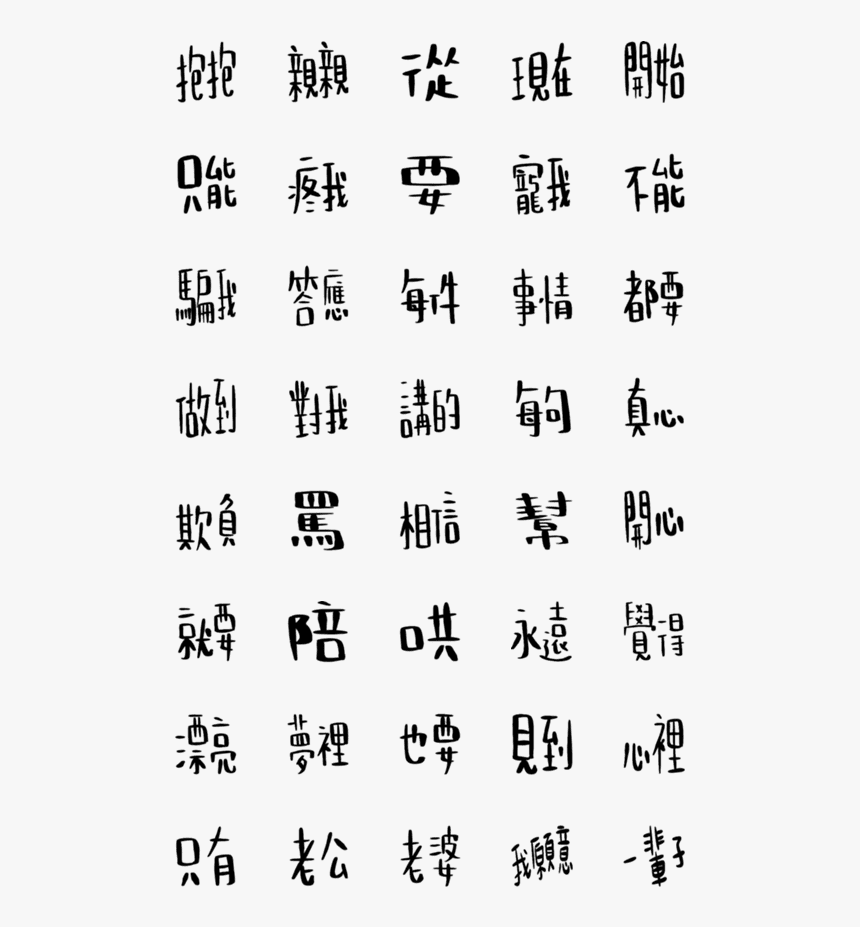 抱抱 親親 從 現在 開始
只能 疼我 要 寵我 不能
騙我 答應 每件 事情 都要
做到 對我 講的 每句 真心
欺負 罵 相信 幫 開心
就要 陪 哄 永遠 覺得
漂亮 夢裡 也要 見到 心裡
只有 老公 老婆 我願意 一輩子